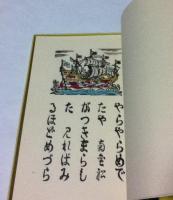 やらやらめで
たや 南蛮船
がつきまらし
た 見ればみ
るほどめづら